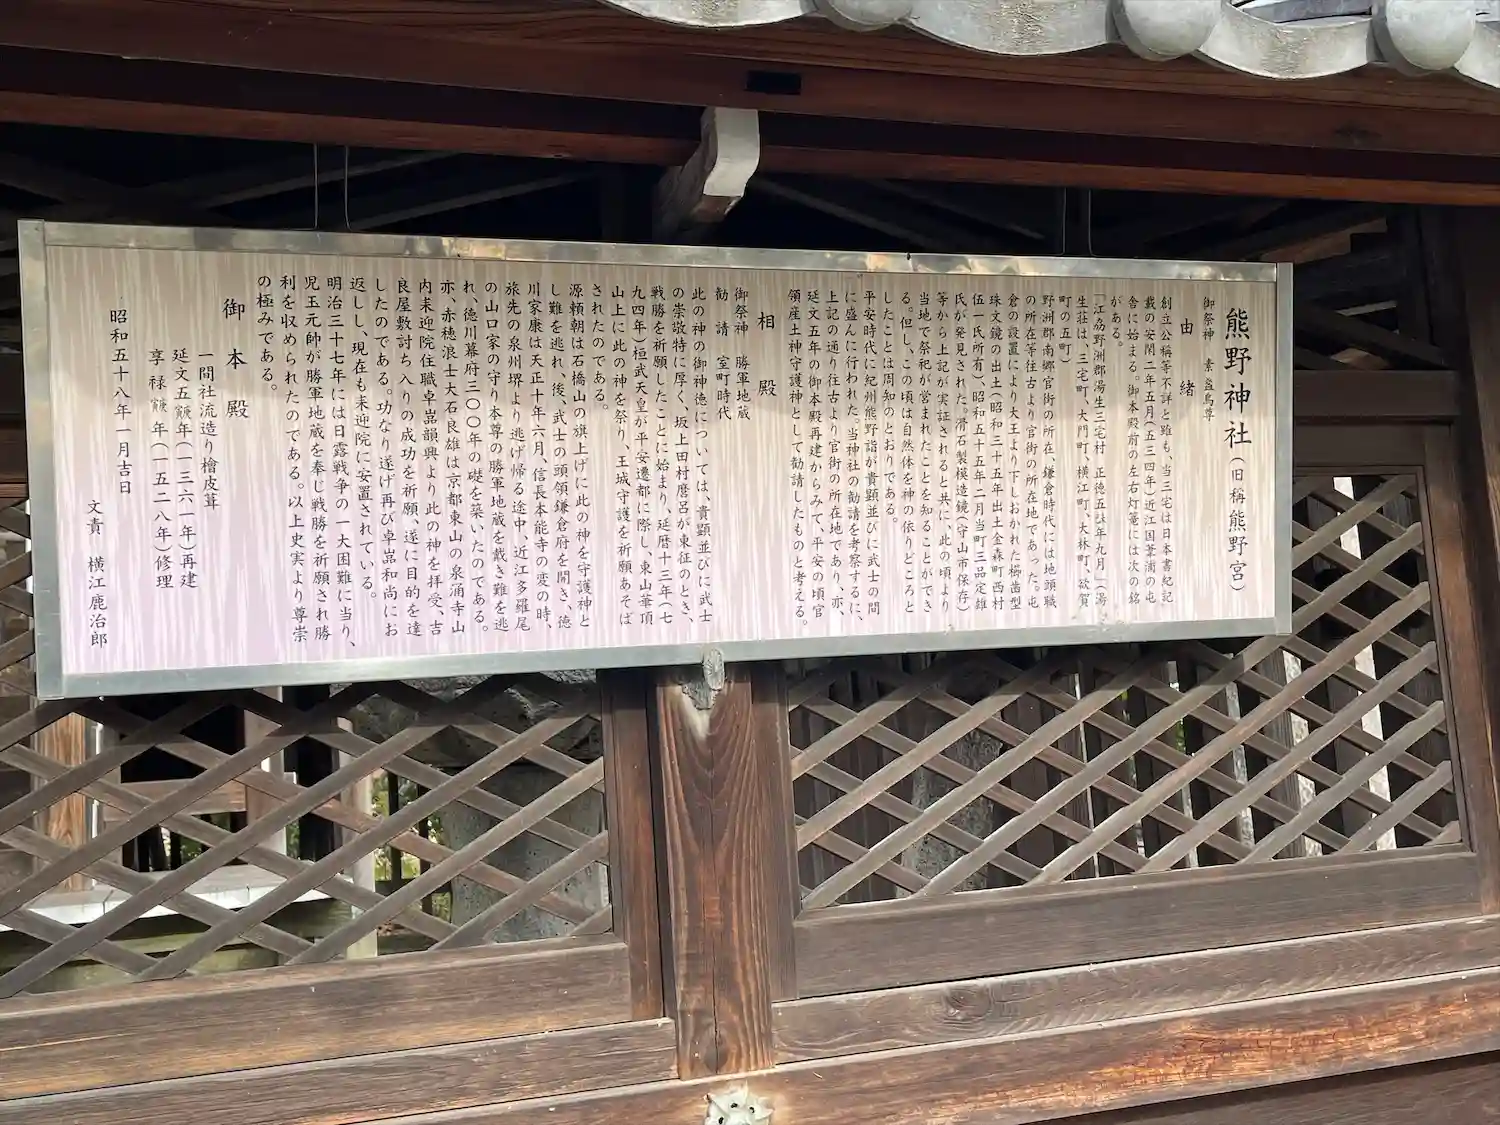 熊野神社(旧稱熊野宮)
御祭神 素盞嗚尊
由緒
創立公稱等不詳と雖も、当三宅は日本書紀記
載の安閑二年五月(五三四年)近江国葦浦の屯
倉に始まる。御本殿前の左右灯篭には次の銘
がある。
「江刕野洲郡湯生三宅村 正徳五 年九月」(湯
生荘は、三宅町、大門町、横江町、大林町、欲賀
町の五町)
野洲郡南郷官衙の所在、鎌倉時代には地頭職
の所在等往古より官衙の所在地であった。屯
倉の設置により大王より下しおかれた櫛歯型
珠文鏡の出土(昭和三十五年出土金森町西村
伍一氏所有)、昭和五十五年二月当町三品定雄
氏が発見された。滑石製模造鏡(守山市保存)
等から上記が実証されると共に、此の頃より
当地で祭祀が営まれたことを知ることができ
る。但し、この頃は自然体を神の依りどころと
したことは周知のとおりである。
平安時代に紀州熊野詣が貴顕並びに武士の間
に盛んに行われた。当神社の勧請を考察するに、
上記の通り往古より官衙の所在地であり、亦、
延文五年の御本殿再建からみて、平安の頃官
領産土神守護神として勧請したものと考える。
相殿
御祭神 勝軍地蔵
勧請 室町時代
此の神の御神徳については、貴顕並びに武士
の崇敬特に厚く、坂上田村麿呂が東征のとき、
戦勝を祈願したことに始まり、延暦十三年(七
九四年)桓武天皇が平安遷都に際し、東山華頂
山上に此の神を祭り、王城守護を祈願あそば
されたのである。
源頼朝は石橋山の旗上げに此の神を守護神と
し難を逃れ、後、武士の頭領鎌倉府を開き、徳
川家康は天正十年六月、信長本能寺の変の時、
旅先の泉州堺より逃げ帰る途中、近江多羅尾
の山口家の守り本尊の勝軍地蔵を戴き難を逃
れ、徳川幕府三〇〇年の礎を築いたのである。
亦、赤穂浪士大石良雄は京都東山の泉涌寺山
内来迎院住職卓嵓韻興より此の神を拝受、吉
良屋敷討ち入りの成功を祈願、遂に目的を達
したのである。功なり遂げ再び卓嵓和尚にお
返しし、現在も来迎院に安置されている。
明治三十七年には日露戦争の一大困難に当り、
児玉元師が勝軍地蔵を奉じ戦勝を祈願され勝
利を収められたのである。以上史実より尊崇
の極みである。
御本殿
一間社流造り檜皮葺
延文五 年(一三六一年)再建
享禄 年(一五二八年)修理
昭和五十八年一月吉日
文責 横江鹿治郎